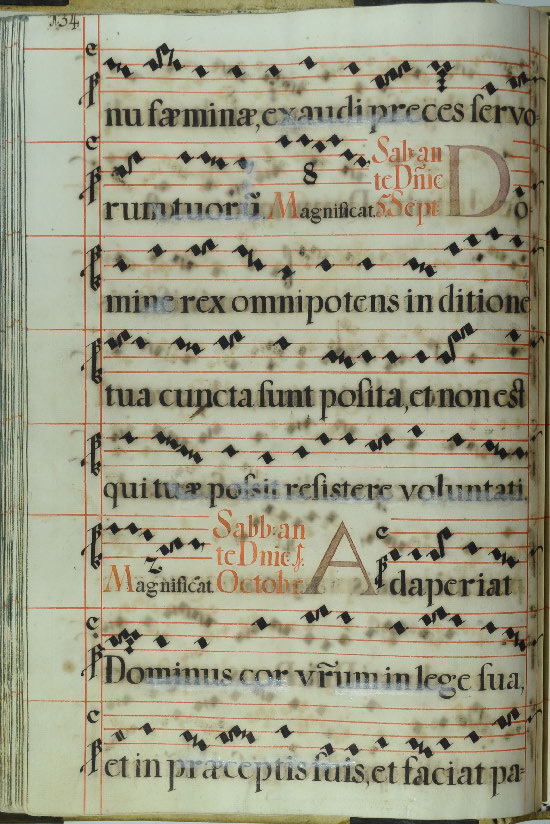 134
nu fæminæ, exaudi preces servo
rum tuorū. Magnificat. Sab. an
te Dn̄ic
5 Sept
Do-
mine rex omnipotens in ditione
tua cuncta sunt posita, et non est
qui tuæ possit resistere voluntati.
Magnificat Sabb. an
te Dnic.
Octobr. Adaperiat
Dominus cor vr̄um in lege sua,
et in præceptis suis, et faciat pa-